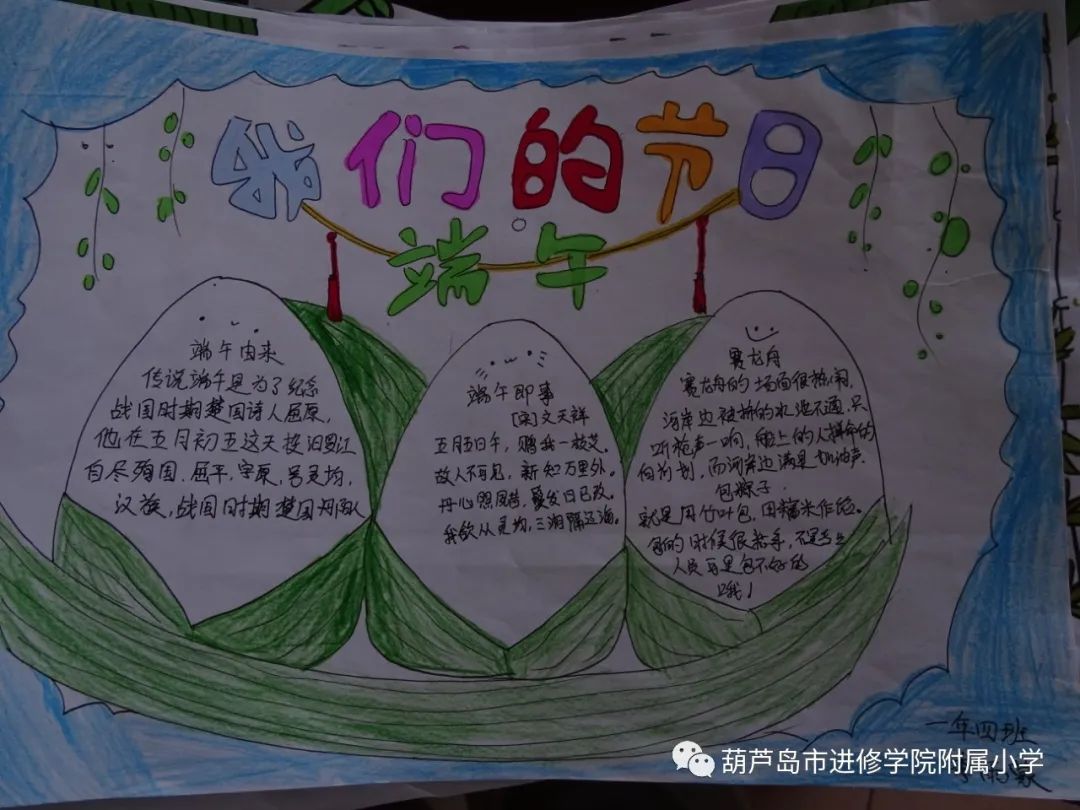 我们的节日
端午
端午由来
传说端午是为了纪念
战国时期楚国诗人屈原,
他在五月初五这天投汨罗江
自尽殉国.屈平,字原,号灵均,
汉族,战国时期楚国丹
端午即事
[宋]文天祥
五月五日午,赠我一枝艾。
故人不可见,新知万里外。
丹心照夙昔,鬓发日已改。
我欲从灵均,三湘隔辽海。
赛龙舟
赛龙舟的场面很热闹,
河岸边被挤的水泄不通.只
听枪声一响,船上的人拼命的
向前划,而河岸边满是加油声.
包粽子.
就是用竹叶包,由糯米作馅。
包的时候很棘手,不是专业
人员可是包不好的
哦!
一年四班
葫芦岛市进修学院附属小学